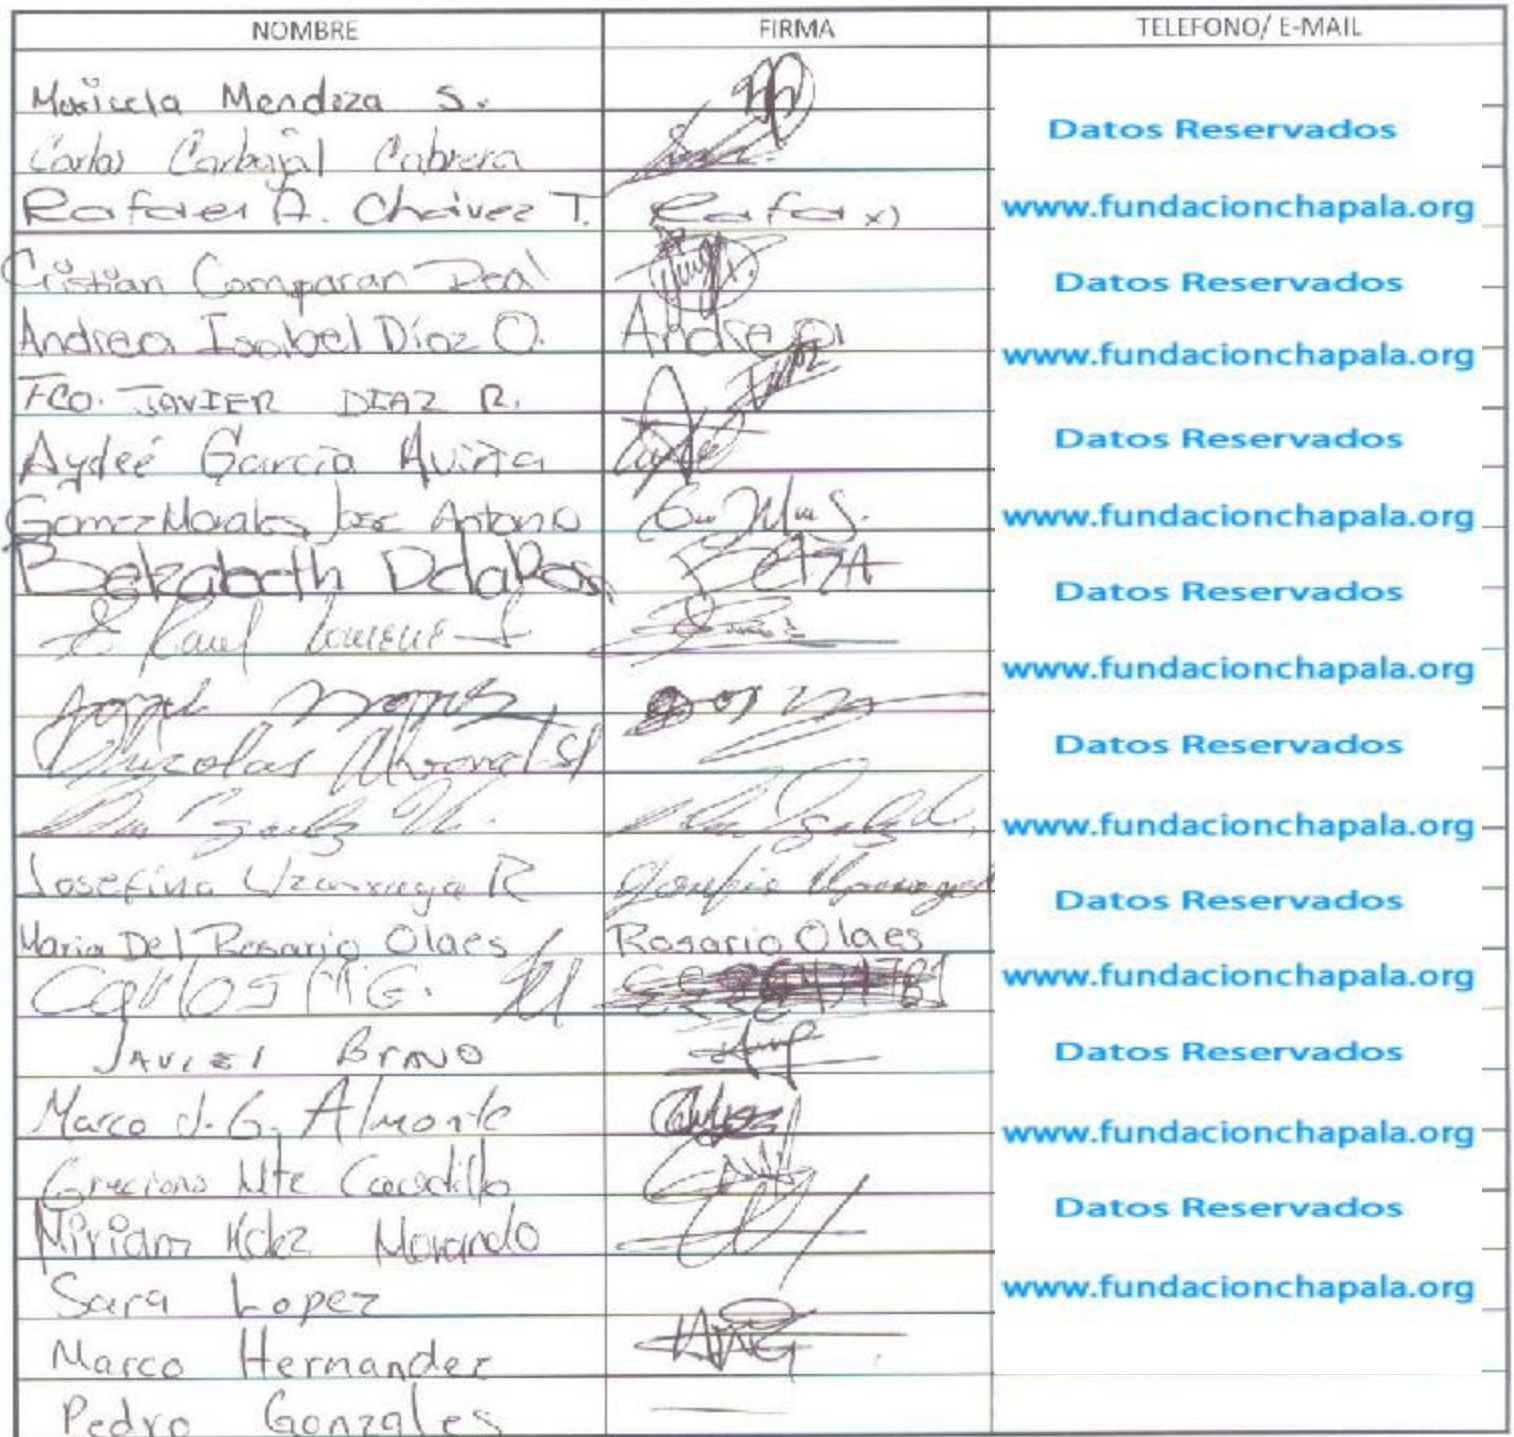 NOMBRE FIRMA TELEFONO/ E-MAIL
Maricela Mendoza S.
Datos Reservados
Carlos Carbajal Cabrera
Rafael A. Chávez T. Rafa x) www.fundacionchapala.org
Cristian Comparan Real Datos Reservados
Andrea Isabel Díaz O. Andrea Di www.fundacionchapala.org
FCO. JAVIER DIAZ R.
Aydeé García Aviña Datos Reservados
Gomez Morales Jose Antonio www.fundacionchapala.org
Betzabeth DelaRos BETZA Datos Reservados
Raul
www.fundacionchapala.org
Angel
Nicolas Datos Reservados
www.fundacionchapala.org
Josefina R Datos Reservados
Maria Del Rosario Olaes Rosario Olaes
Carlos M G. www.fundacionchapala.org
Javier Bravo Datos Reservados
Marco J. G. Almonte www.fundacionchapala.org
Graciano Mte Datos Reservados
Miriam Hdez Morando
Sara Lopez www.fundacionchapala.org
Marco Hernandez
Pedro Gonzales